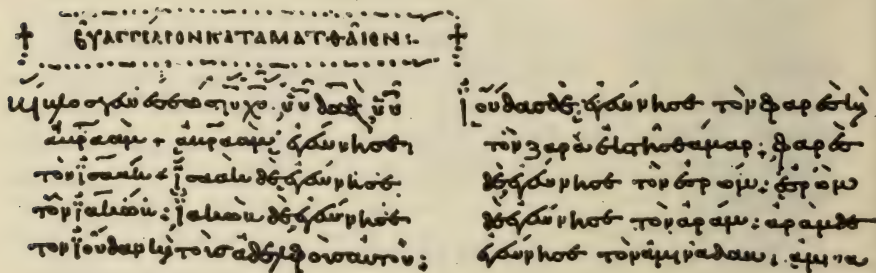 ΕΥΑΓΓΕΛΙΟΝ ΚΑΤΑ ΜΑΤΘΑΙΟΝ:
Βίβλος γενέσεως ιυ χυ υυ δαδ υυ
ἀβραάμ + ἀβραάμ ἐγέννησε
τὸν ἰσαάκ + ἰσαάκ δὲ ἐγέννησε
τὸν ἰακώβ: ἰακώβ δὲ ἐγέννησε
τὸν ἰούδαν καὶ τοὺς ἀδελφοὺς αὐτοῦ:
Ἰούδας δὲ ἐγέννησε τὸν φαρὲς καὶ
τὸν ζαρὰ ἐκ τῆς θάμαρ: φαρὲς
δὲ ἐγέννησε τὸν ἐσρώμ: ἐσρώμ
δὲ ἐγέννησε τὸν ἀράμ: ἀράμ δὲ
ἐγέννησε τὸν ἀμιναδάβ: ἀμινα